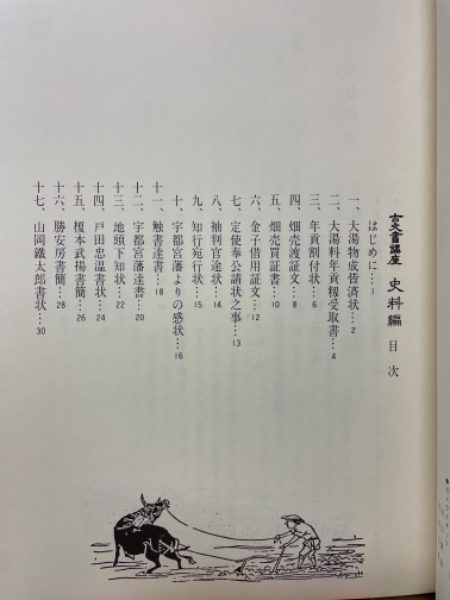 古文書講座 史料編 目次
はじめに…1
一、大湯物成皆済状…2
二、大湯料年貢糎受取書…4
三、年貢割付状…6
四、畑売渡証文…8
五、畑売買証書…10
六、金子借用証文…12
七、定使奉公請状之事…13
八、袖判官途状…14
九、知行宛行状…15
十、宇都宮藩よりの感状…16
十一、触書達書…18
十二、宇都宮藩達書…20
十三、地頭下知状…22
十四、戸田忠温書状…24
十五、榎本武揚書簡…26
十六、勝安房書簡…28
十七、山岡鐵太郎書状…30